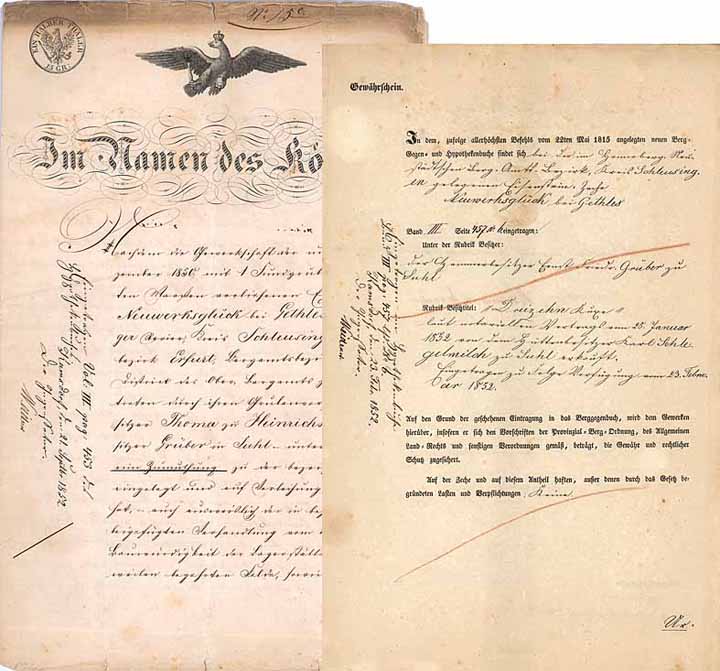 No. 15c
EIN HALBER THALER
15 GR.
Im Namen des Kö
Nachdem die Gewerkschaft der
zember 1850 mit 1 Fundgrube
ten Maaßen verliehenen
Neuwerksglück bei Gethles
ger Revier, Kreis Schleusing
bezirk Erfurt, Bergamtsbez
District des Ober-Bergamts
treten durch ihren Grubenver
sitzer Thoma zu Heinrichs
sitzer Grüber in Suhl - unter
eine Zumuthung zu der bezei
eingelegt und auf Verleihung
hat, - auch
beigefügten Verhandlung vom
Bauwürdigkeit der Lagerstätte
weilen begehrten Felde, sowie
Eingetragen Vol. III pag. 453 des
Kamsdorf, den 21 Septb. 1852.
Gewährschein.
In dem, zufolge allerhöchsten Befehls vom 22ten Mai 1815 angelegten neuen Berg-
Gegen- und Hypothekenbuche findet sich bei der im Henneberg. Neu-
städtschen Berg-Amts-Bezirk, Kreis Schleusing-
en gelegenen Eisenstein-Zeche
Neuwerksglück bei Gethles
Band III. Seite 457 eingetragen:
Unter der Rubrik Besitzer:
der Hammerbesitzer Ernst Friedr. Grüber zu
Suhl
Rubrik Besitztitel: "Dreizehn Kuxe"
laut notariellen Vertrags vom 25. Januar
1852 von dem Hüttenbesitzer Karl Schle-
gelmilch zu Suhl erkauft.
Eingetragen zu Folge Verfügung vom 23. Febru-
ar 1852.
Auf den Grund der geschehenen Eintragung in das Berggegenbuch, wird dem Gewerken
hierüber, insofern er sich den Vorschriften der Provinzial-Berg-Ordnung, des Allgemeinen
Land-Rechts und sonstigen Verordnungen gemäß, beträgt, die Gewähr und rechtlicher
Schutz zugesichert.
Auf der Zeche und auf diesem Antheil haften, außer denen durch das Gesetz be-
gründeten Lasten und Verpflichtungen Keine.
Kamsdorf, den 23. Febr. 1852.
Ur.